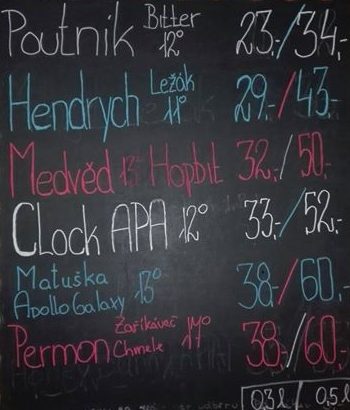 Poutník Bitter 12° 23,-/34,-
Hendrych Ležák 11° 29,-/43,-
Medvěd 13° Hopbit 32,-/50,-
Clock APA 12° 33,-/52,-
Matuška Apollo Galaxy 13° 38,-/60,-
Permon Zaříkávač Chmele 17° 38,-/60,-
0,3 l / 0,5 l